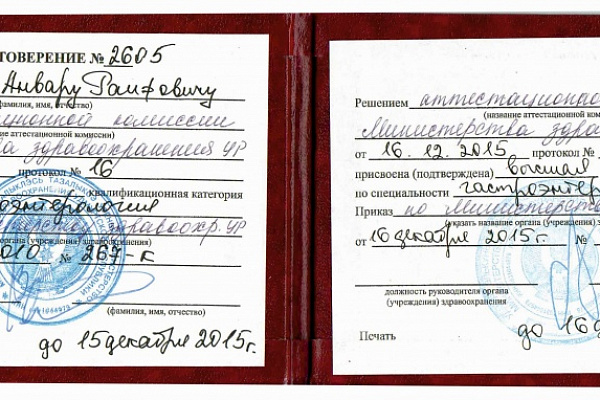 ТОВЕРЕНИЕ № 2605
Анвару Раифовичу
фамилия, имя, отчество)
ционной комиссии
ие аттестационной комиссии)
ва здравоохранения УР
протокол № 16
квалификационная категория
оэнтерология
здравоохр. УР
органа (учреждения) здравоохранения)
2010 № 267-к
(фамилия, имя, отчество)
до 15 декабря 2015г.
Решением аттестационно
(название аттестационной коми
Министерства здра
от 16.12.2015 протокол №
присвоена (подтверждена) высшая
по специальности гастроэнтер
Приказ по Министерств
(указать название органа (учрежден
от 16 декабря 2015г. №
должность руководителя органа
(учреждения) здравоохранения
Печать
до 16 д